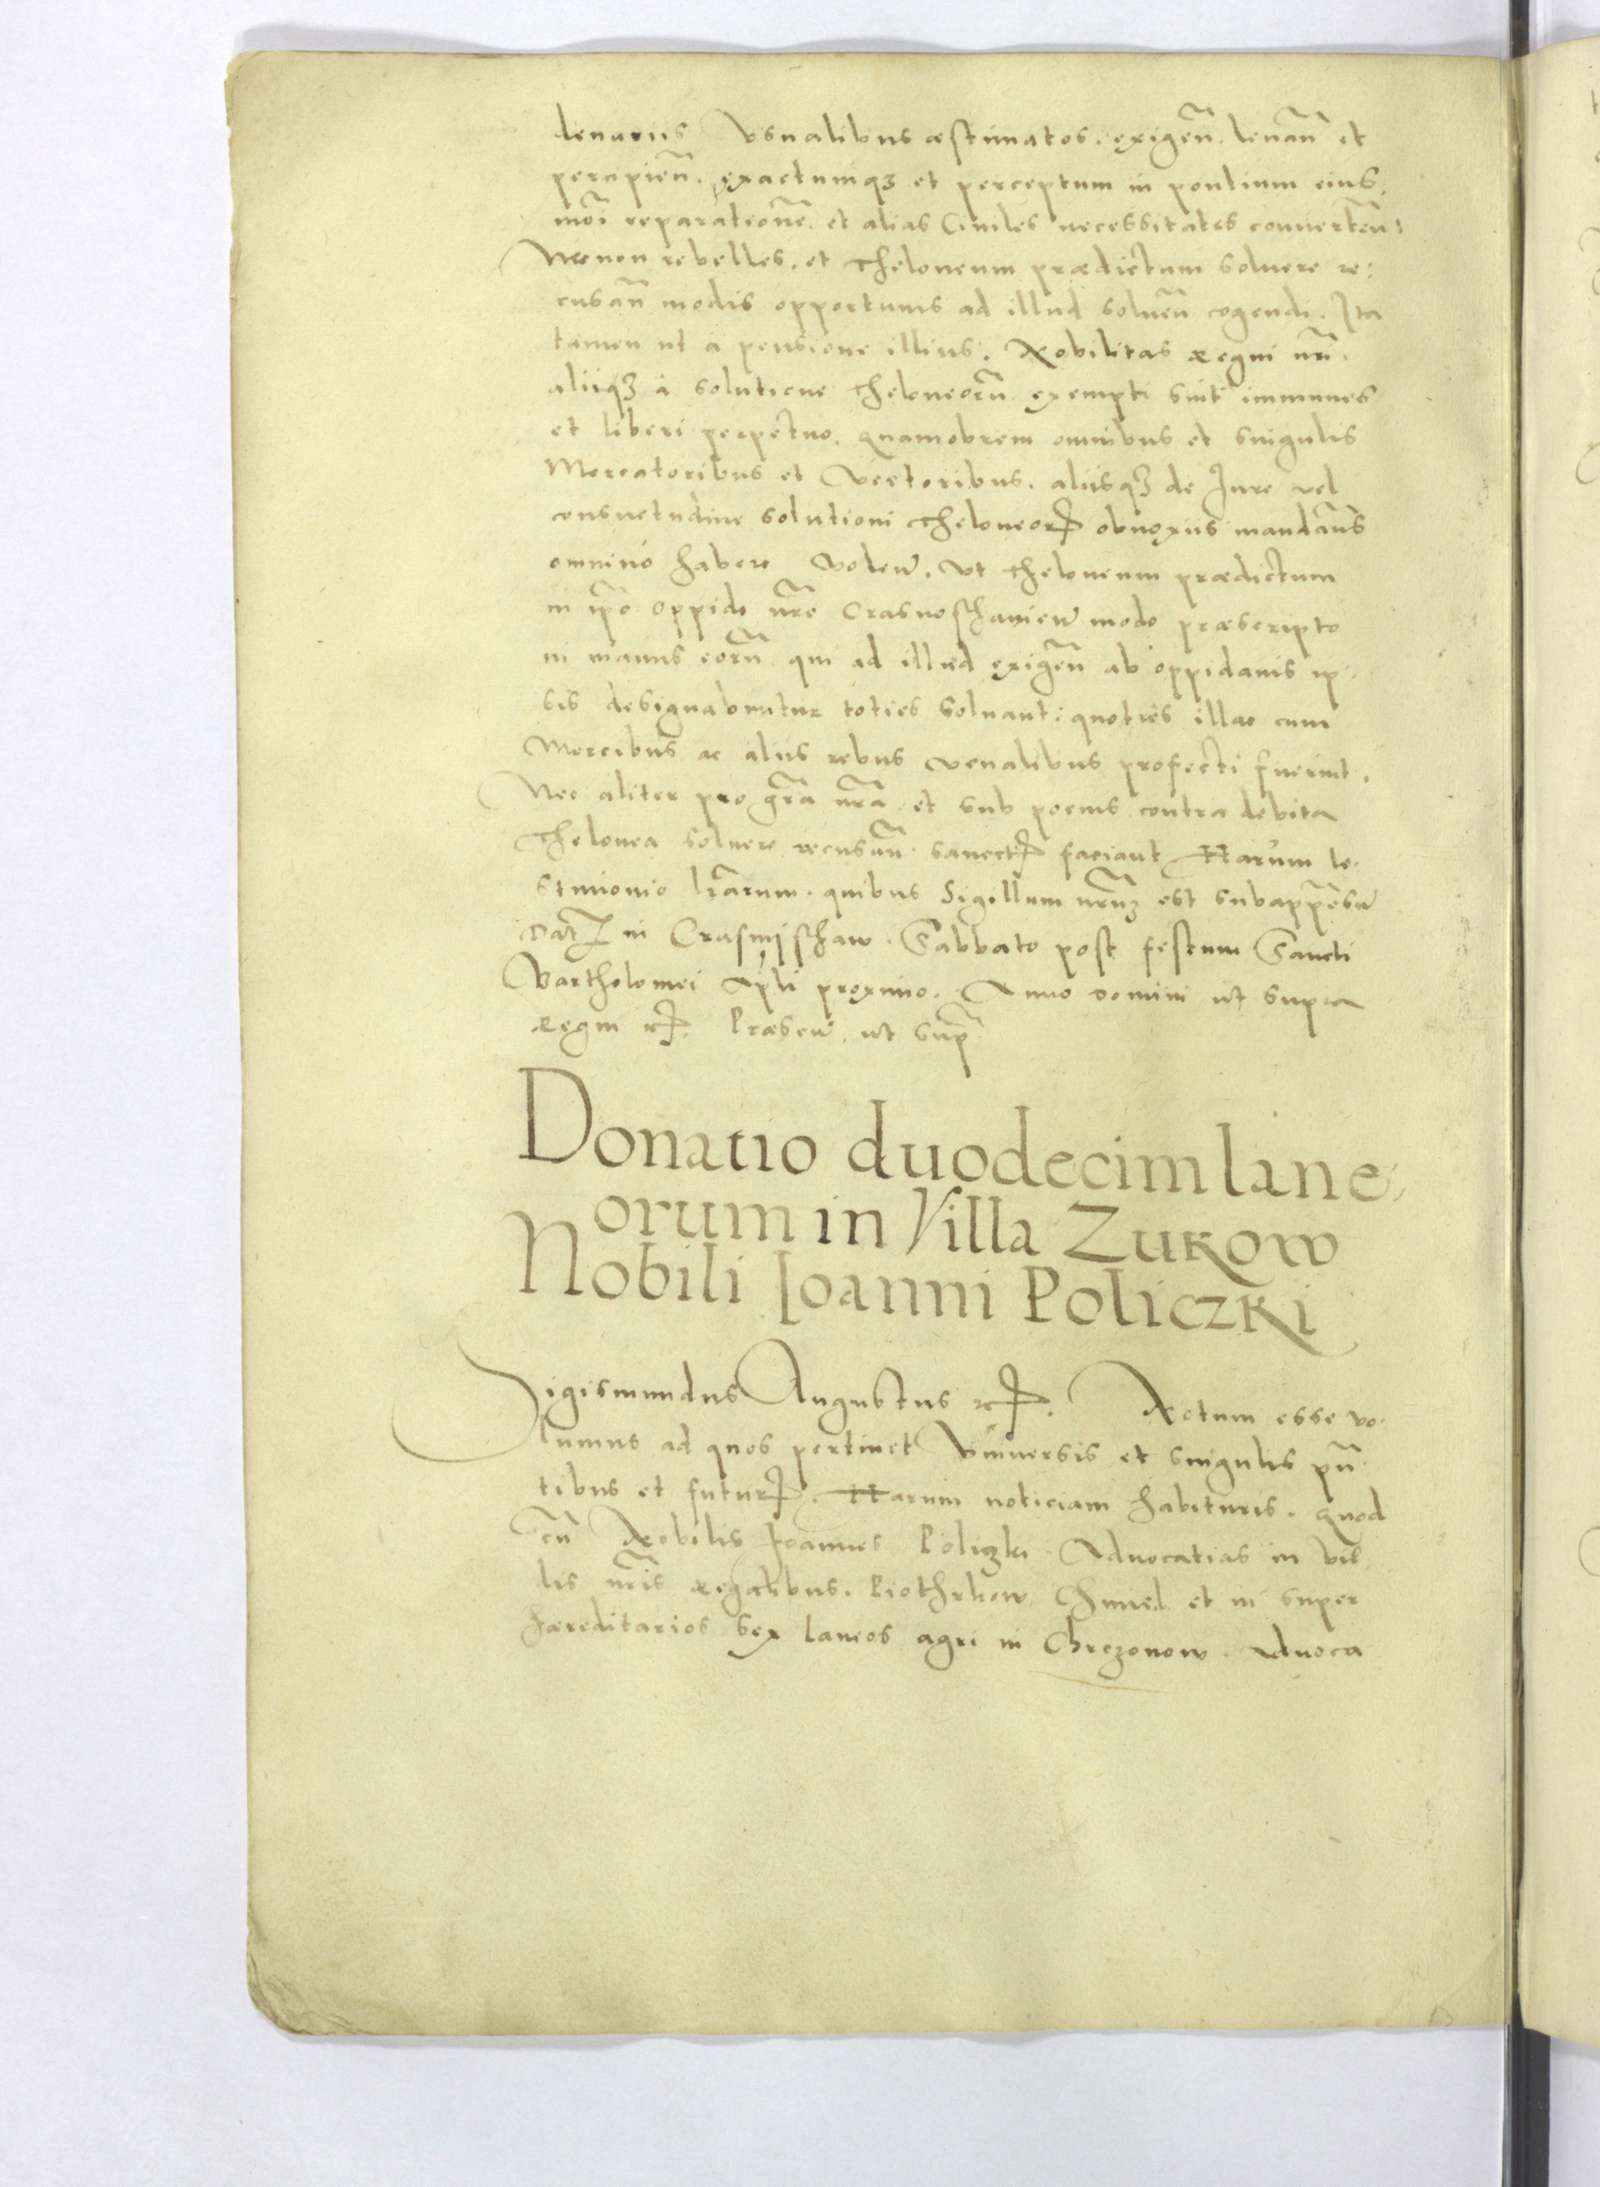 denariis Vsualibus æstimatos. exigen̄. leuan̄ et
percipien̄. exactumqʒ et perceptum in pontium eius,
mōi reparatione͂. et alias Ciuiles necessitates conuerten̄:
Necnon rebelles. et Theloneum prædictum soluere re:
cusan̄ modis opportunis ad illud soluen̄ cogendi. Ita
tamen ut a pensione illius. Nobilitas Regni nr̄i.
aliiqʒ à solutione Theloneorū exempti sint immunes
et liberi perpetuo. Quamobrem omnibus et singulis
Mercatoribus et Vectoribus. aliisqʒ de Jure vel
consuetudine solutioni Theloneorꝝ obnoxiis mandam̄s
omnino habere volen̄. Vt Theloneum prædictum
in ip̄o Oppido nr̄o Crasnoschaniew modo præscripto
in manus eorū qui ad illud exigen̄ ab oppidanis ip,
sis designabuntur toties soluant: quoties illac cum
Mercibus ac aliis rebus venalibus profecti fuerint.
Nec aliter pro gr̄a nr̄a. et sub poenis contra debita
Thelonea soluere recusan̄. sancitꝭ faciant Harum te,
stimonio lr̄arum. quibus Sigillum nr̄umʒ est subappen̄su͂
Datꝭ in Crasnijschaw. Sabbato post festum Sancti
Bartholomei Ap̄li proximo. Anno Domini ut supra
Regni rꝭ. Præsen̄. ut sup̄
Donatio duodecim lane,
orum in Villa Zukow
Nobili Ioanni Policzki
Sigismundus Augustus rꝭ. Notum esse vo,
lumus ad quos pertinet Vniuersis et singulis pn̄,
tibus et futurꝭ. Harum noticiam habituris. Quod
cū Nobilis Joannes Policzki Aduocatias in vil,
lis nr̄is Regalibus. Piothrkow Chmiel et in super
hæreditarios sex laneos agri in Chrczonow. Aduoca